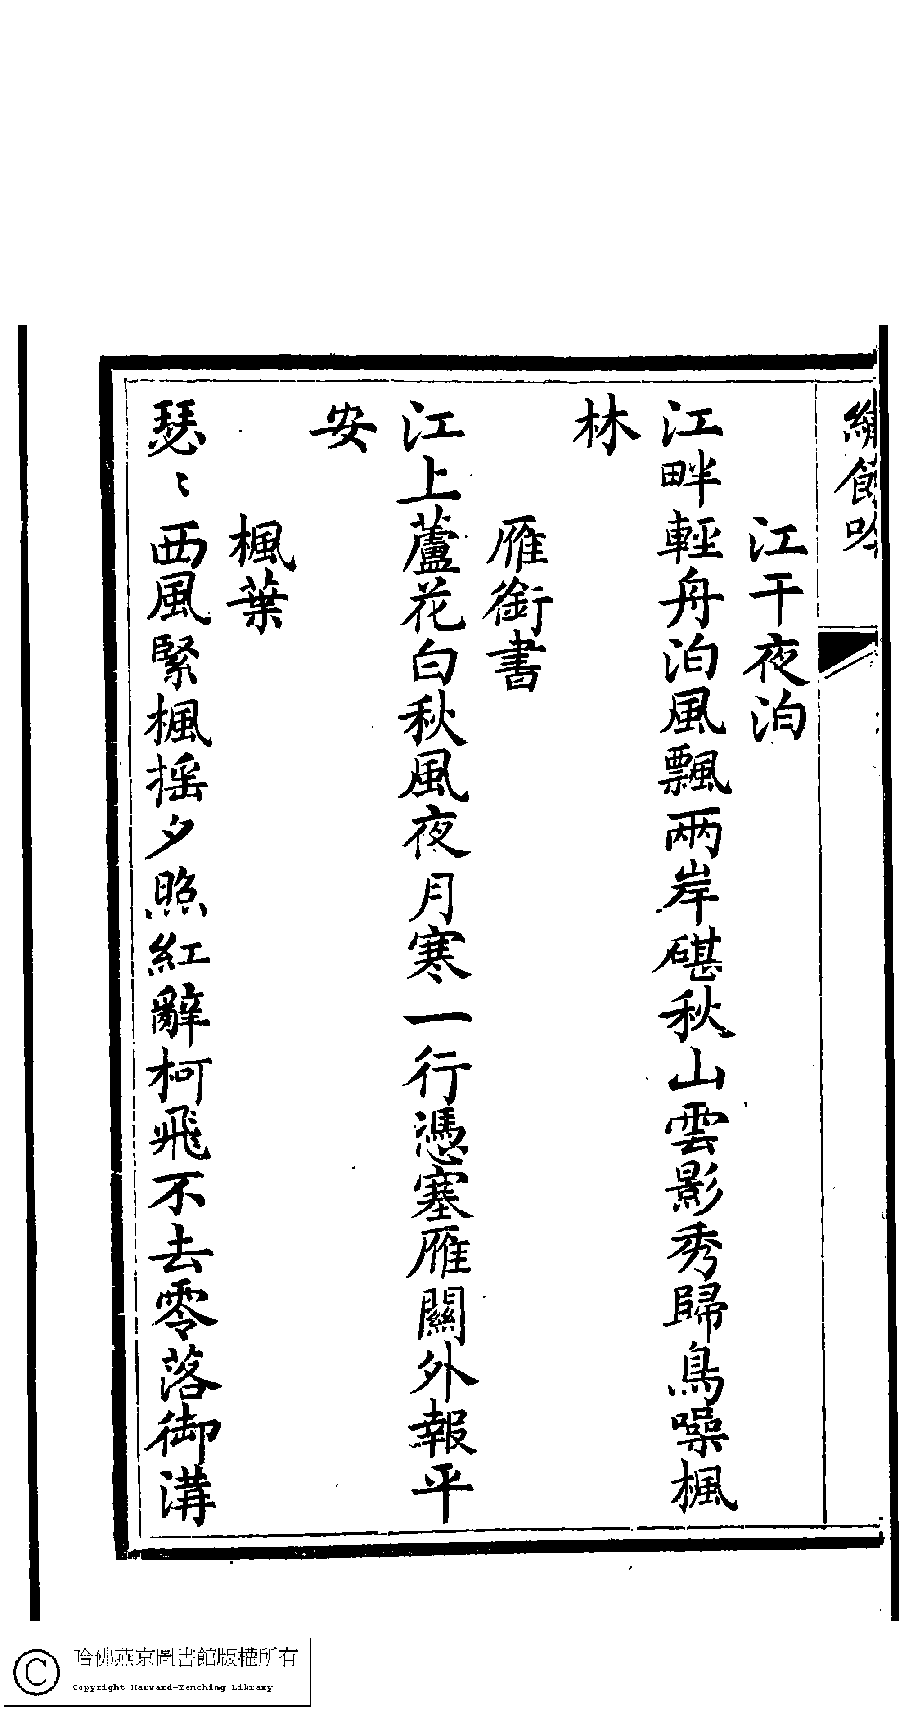 繡餘吟
江干夜泊
江畔輕舟泊風飄兩岸碪秋山雲影秀歸鳥噪楓
林
雁銜書
江上蘆花白秋風夜月寒一行憑塞雁關外報平
安
楓葉
瑟〻西風緊楓搖夕照紅辭柯飛不去零落御溝
哈佛燕京圖書館版權所有
Copyright Harvard-Yenching Library